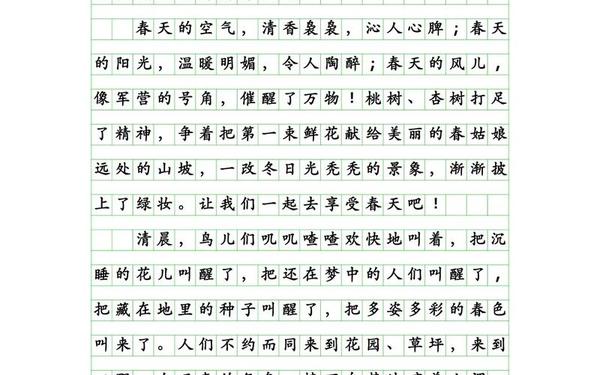 春天的空气，清香袅袅，沁人心脾；春天
的阳光，温暖明媚，令人陶醉；春天的风儿，
像军营的号角，催醒了万物！桃树、杏树打足
了精神，争着把第一束鲜花献给美丽的春姑娘
远处的山坡，一改冬日光秃秃的景象，渐渐披
上了绿妆。让我们一起去享受春天吧！
清晨，鸟儿们叽叽喳喳欢快地叫着，把沉
睡的花儿叫醒了，把还在梦中的人们叫醒了，
把藏在地里的种子叫醒了，把多姿多彩的春色
叫来了。人们不约而同来到花园、草坪，来到